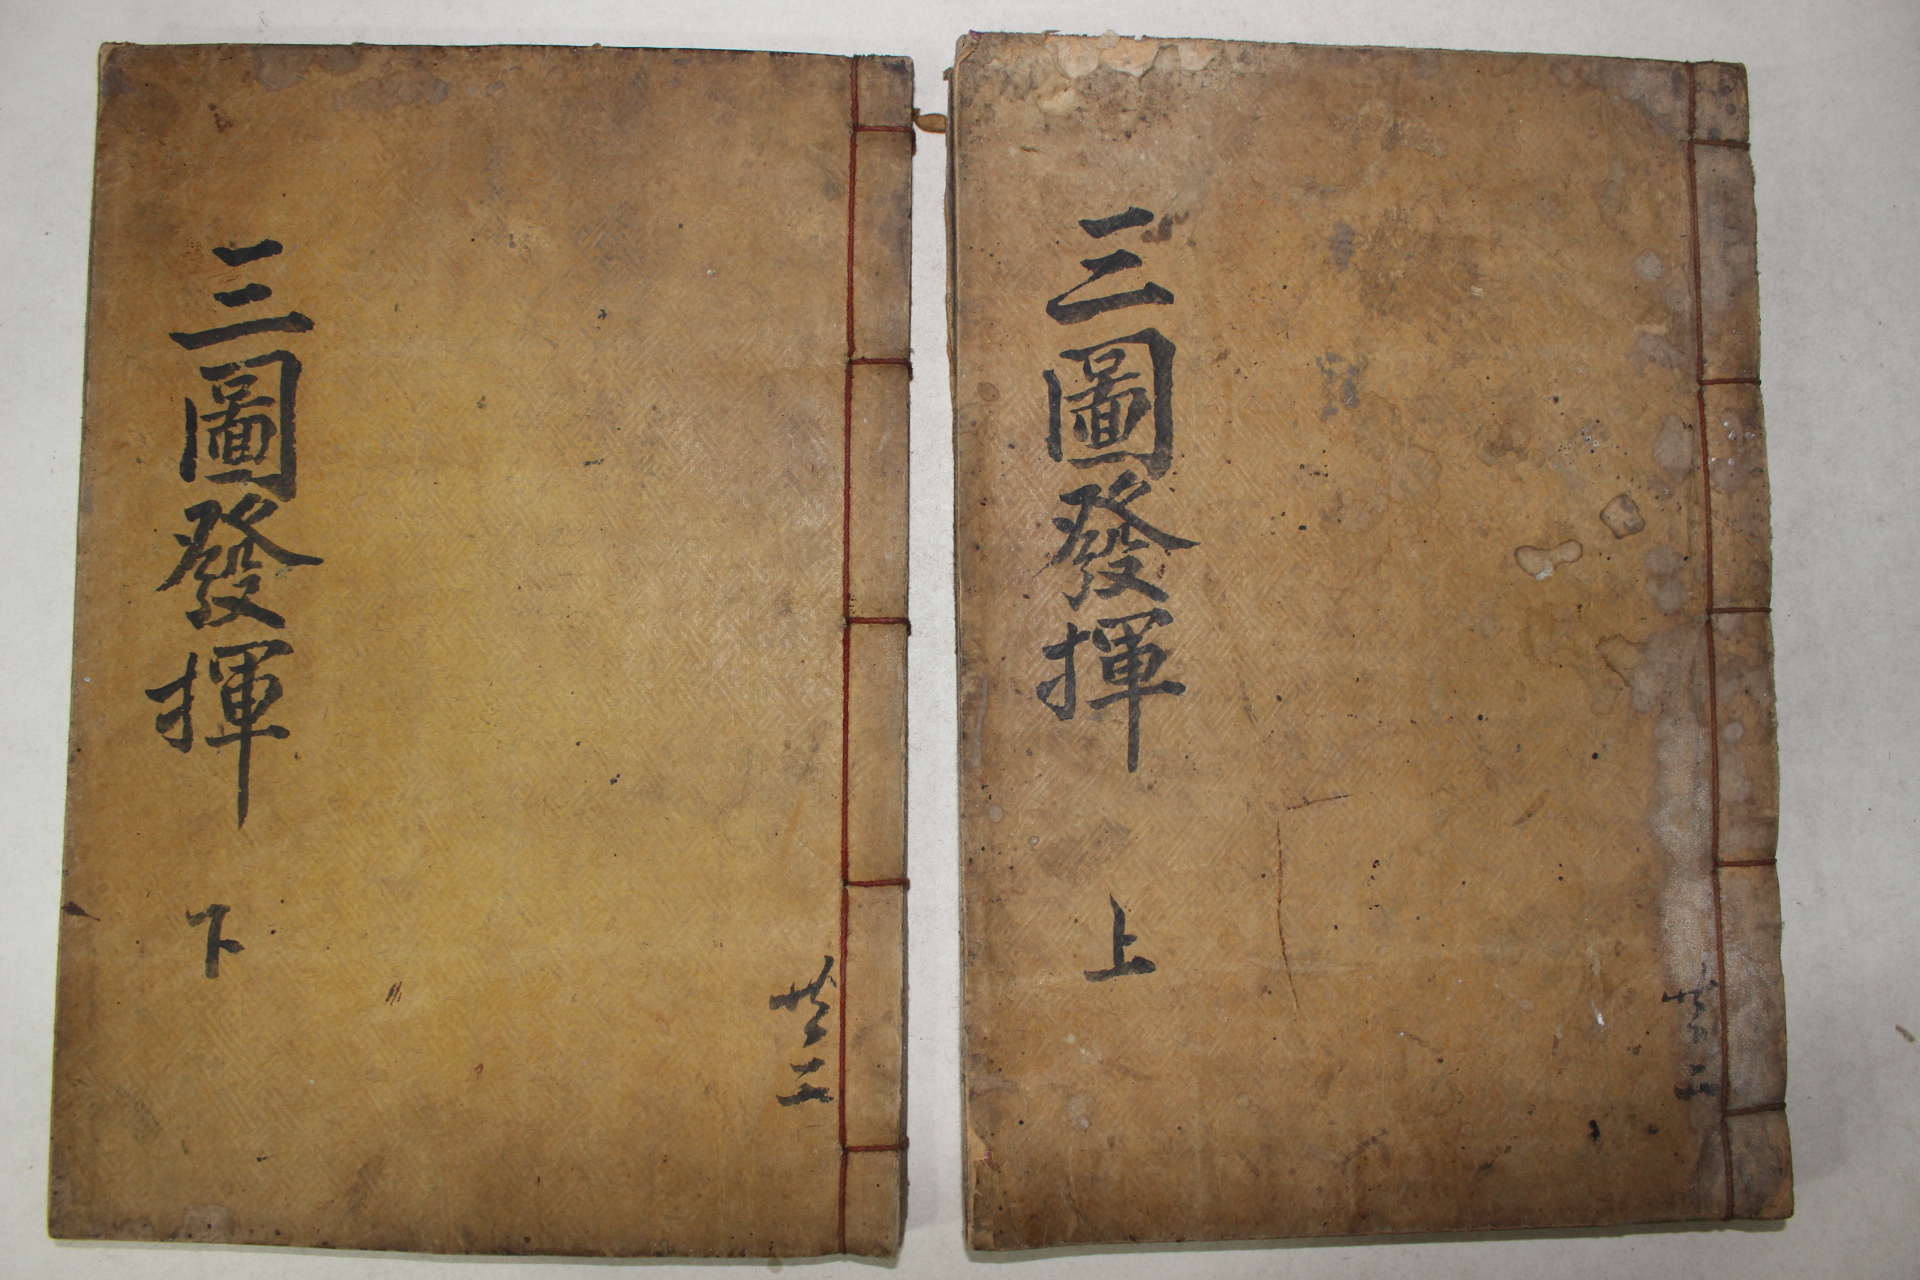 三圖發揮 上
共二
三圖發揮 下
共二